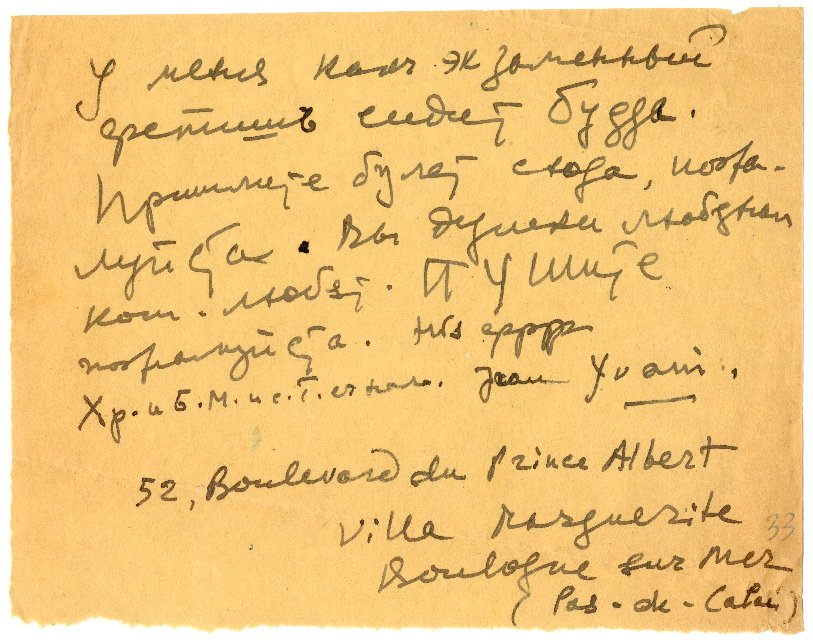 У меня как экзаменный
фетишъ сидит Будда.
Пришлите булат сюда, пожа-
луйста. Вы душеки любдкам
кот. любят. ПУШИТЕ
пожалуйста.
Хр. и Б. М. и с. Т. с нами. Jean Yvani.
52, Boulevard du Prince Albert
Villa Marguerite
Boulogne sur Mer
(Pas-de-Calais)
33